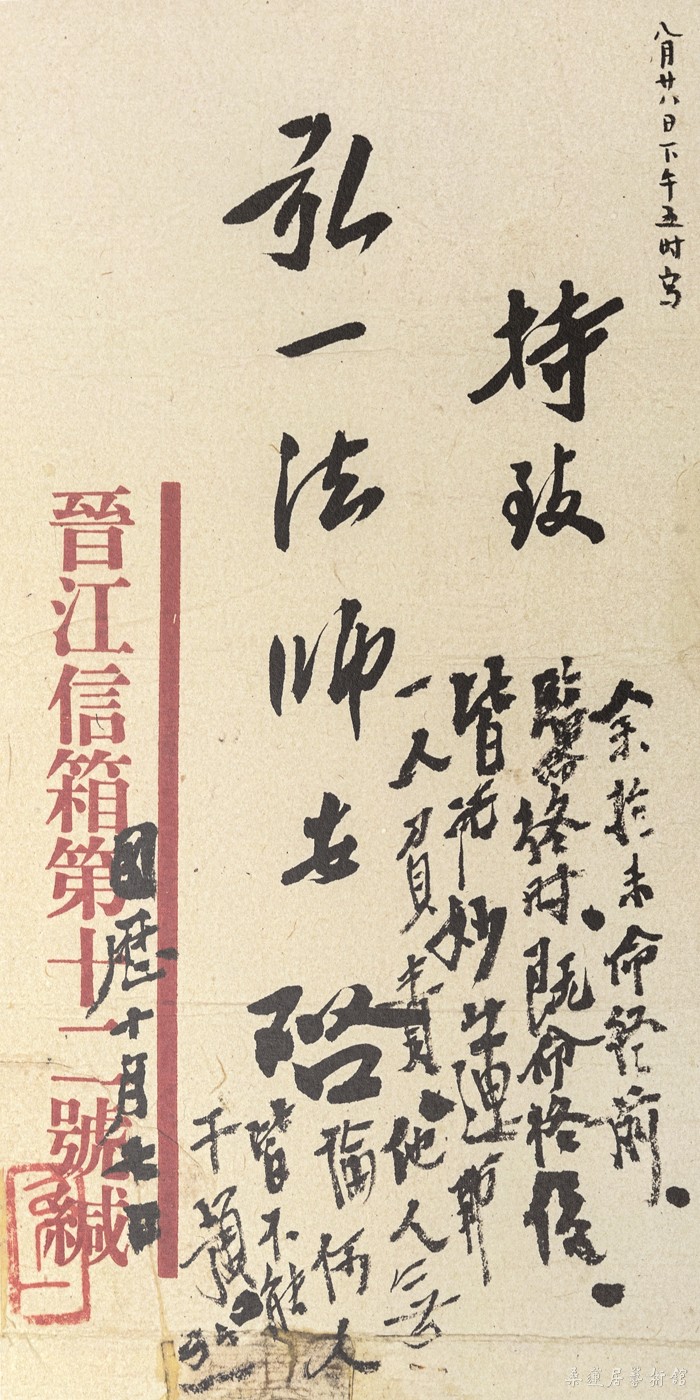 八月廿八日下午五时写
持致
弘一法師安啓
余於未命終前。
臨命終时。既命終後。
皆托妙蓮師
一人負責。他人无
論何人
皆不能
干預
弘一
國曆十月七日
晉江信箱第十二號緘
桑蓮居藝術館